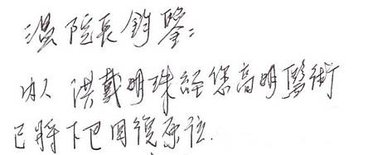 溫院長鈞鑒:
內人 洪戴明珠經您高明醫術
已將下巴回復原位.